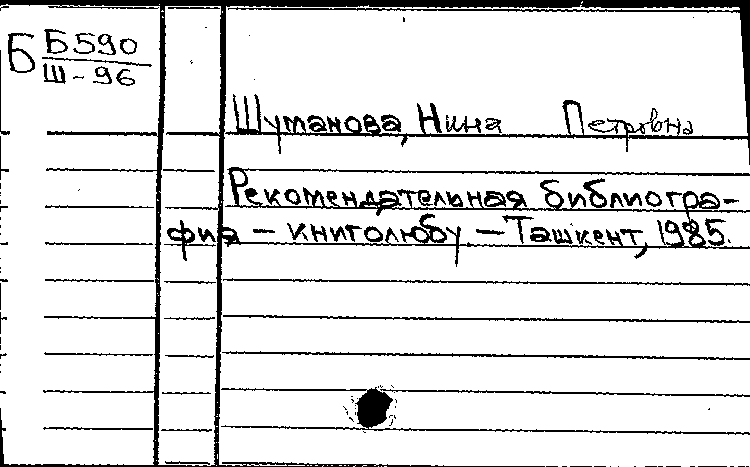 Б Б590
Ш-96
Шуманова, Нина Петровна
Рекомендательная библиогра-
фия — книголюбу. — Ташкент, 1985.